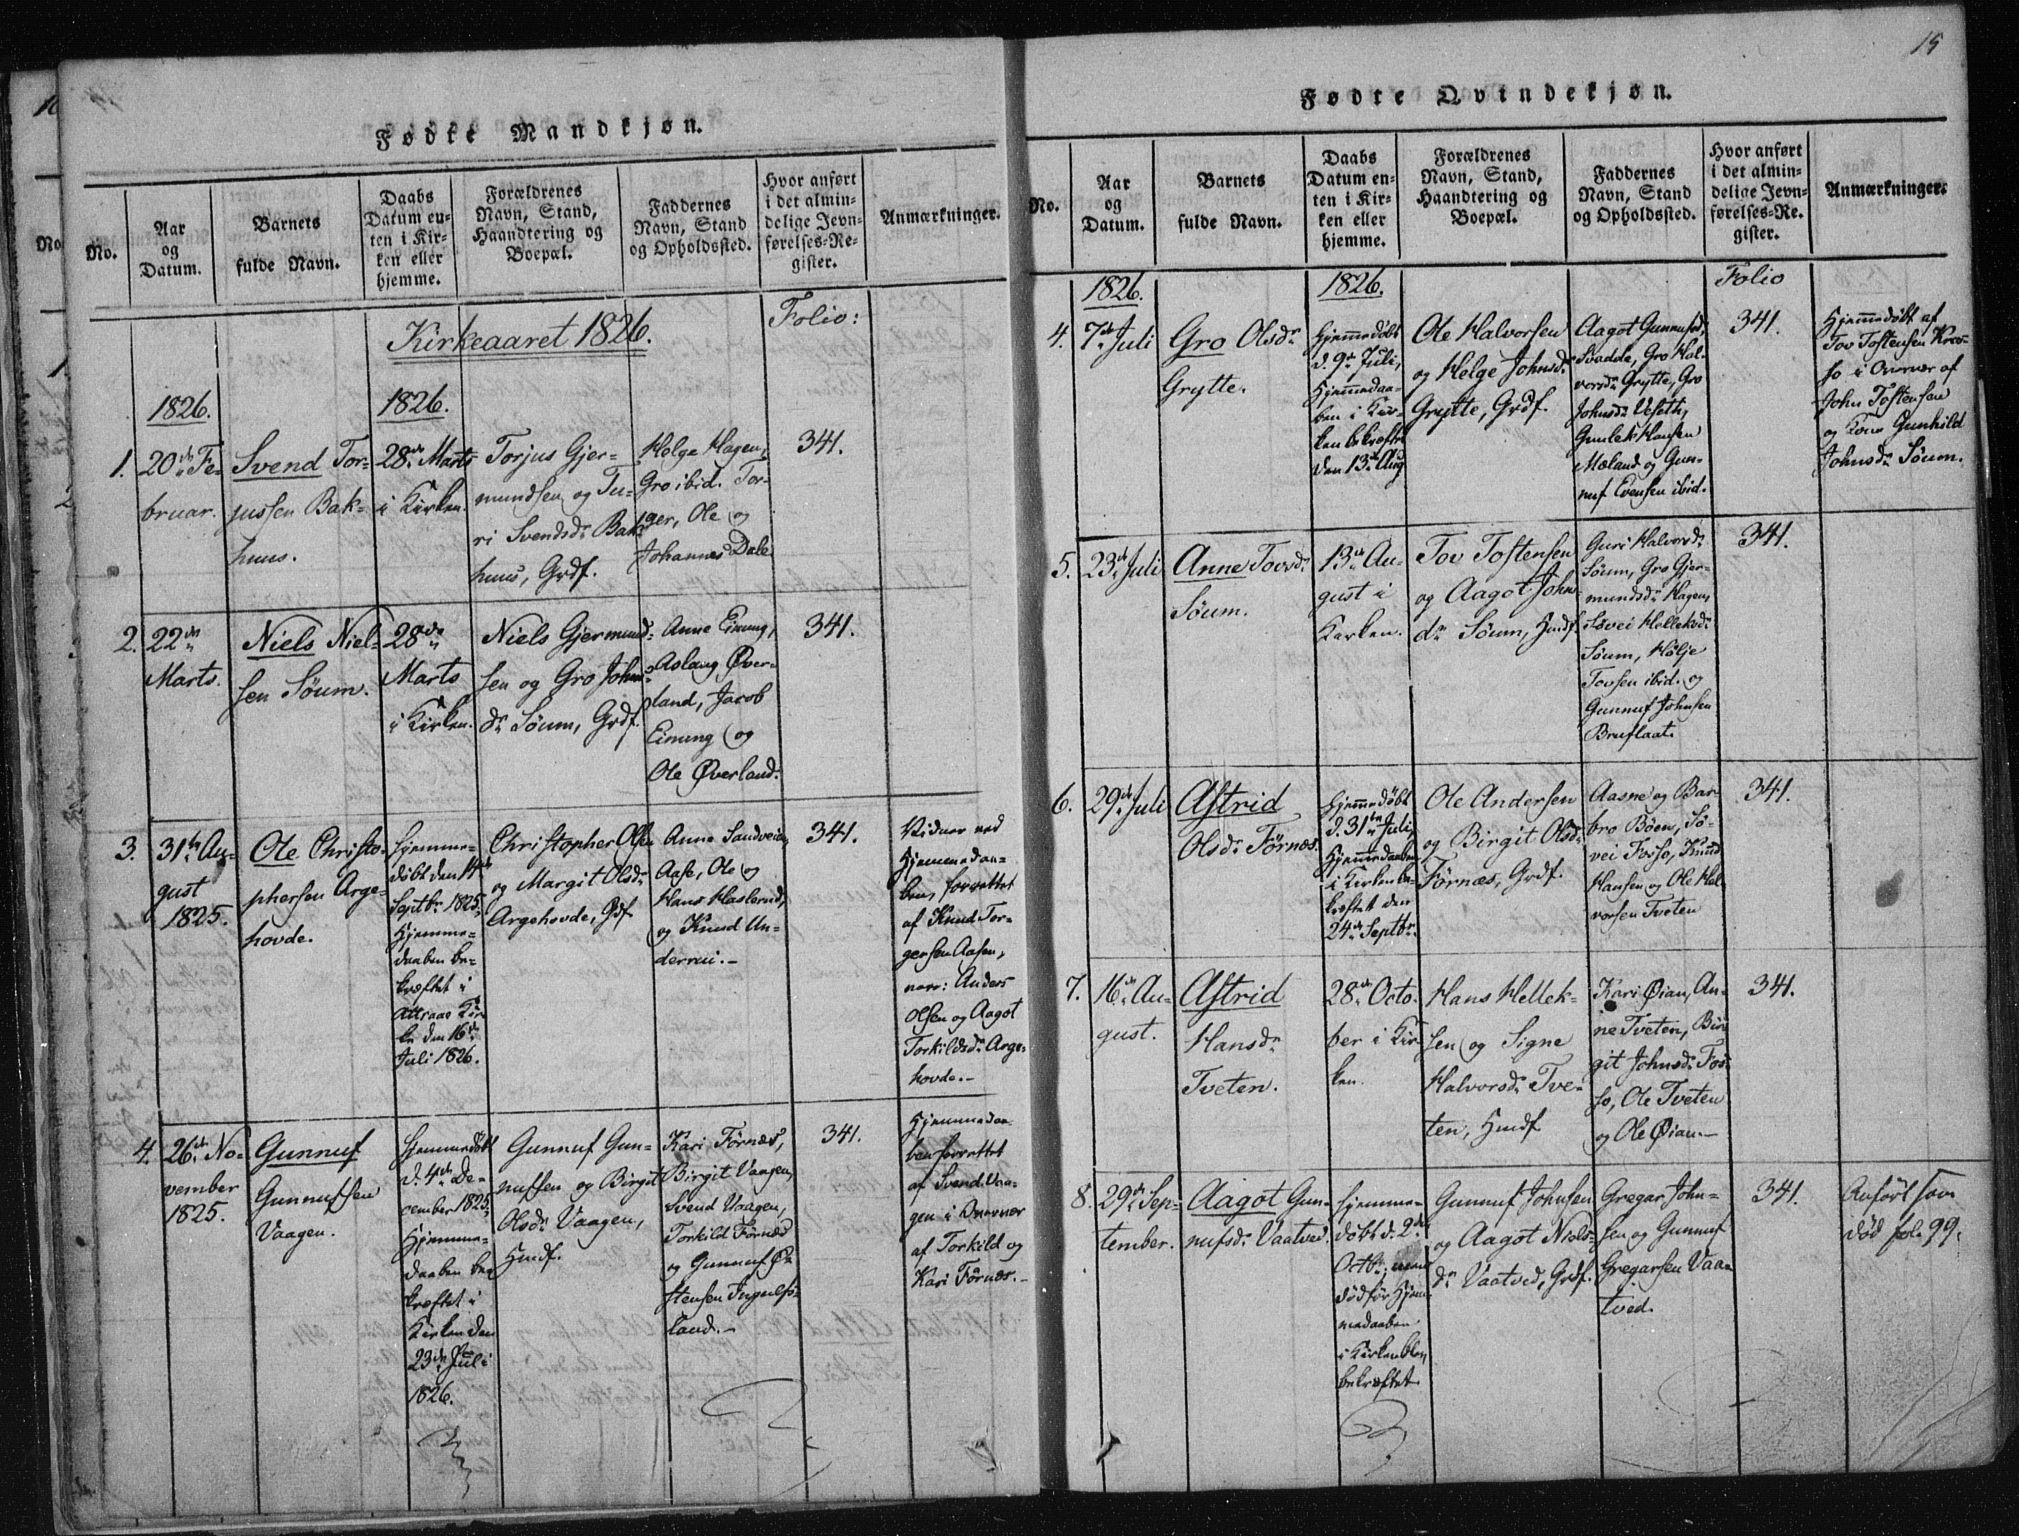 Fødte Mandkjøn.
No.
Aar
og
Datum.
Barnets
fulde Navn.
Daabs
Datum en-
ten i Kir-
ken eller
hjemme.
Forældrenes
Navn, Stand,
Haandtering og
Boepæl.
Faddernes
Navn, Stand
og Opholdssted.
Hvor anført
i det almin-
delige Jevn-
førelses-Re-
gister.
Anmærkninger.
Kirkeaaret 1826.
Folio:
1826.
1826.
1.
20de Fe-
bruar.
Svend Tor-
jussen Bak-
huus.
28de Marts
i Kirken.
Torjus Gjer-
mundsen og Tu-
ri Svendsdr Bak-
huus, Grdf.
Helge Hagen,
Gro ibid. Tor-
ger, Ole og
Johannes Dale
341.
2.
22de
Marts.
Niels Niel-
sen Söum.
28de
Marts
i Kirken.
Niels Gjermund-
sen og Gro Johns-
dr Söum, Grdf.
Anne Einung,
Aslaug Över-
land, Jacob
Einung og
Ole Överland.
341.
3.
31te Au-
gust
1825.
Ole Christo-
phersen Arge-
hovde.
Hjemme-
döbt den 14de
Septbr 1825.
Hjemme-
daaben be-
kræftet i
Attraae Kir-
ke den 16de
Juli 1826.
Christopher Olsen
og Margit Olsdr
Argehovde, Grdf.
Anne Sandveien,
Aase, Ole og
Hans Haslerud,
og Knud Un-
derrui.-
341.
Vidner ved
Hjemmedaa-
ben, forrettet
af Knud Tor-
gersen Aasen,
vare: Anders
Olsen og Aagot
Torkildsdr Arge-
hovde.-
4.
26de No-
vember
1825.
Gunnuf
Gunnufsen
Vaagen.
Hjemmedöbt
d. 4de De-
cember 1825.
Hjemme-
daaben be-
kræftet i
Kirken den
23de Juli
1826.
Gunnuf Gun-
nufsen og Birgit
Olsdr Vaagen,
Hmdf.
Kari Förnæs,
Birgit Vaagen,
Svend Vaagen,
Torkild Förnæs
og Gunnuf Ör-
stensen Ingulfs-
land.-
341.
Hjemmedaa-
ben forrettet
af Svend Vaa-
gen i Overvær
af Torkild og
Kari Förnæs.-
15
Fødte Qvindekjøn.
No.
Aar
og
Datum.
Barnets
fulde Navn.
Daabs
Datum en-
ten i Kir-
ken eller
hjemme.
Forældrenes
Navn, Stand,
Haandtering og
Boepæl.
Faddernes
Navn, Stand
og Opholdsted.
Hvor anført
i det almin-
delige Jevn-
førelses-Re-
gister.
Anmærkninger.
1826.
1826.
Folio
4.
7de Juli
Gro Olsdr
Grytte.
Hjemmedöbt
d. 9de Juli,
Hjemmedaa-
ben i Kir-
ken bekræftet
den 13de Aug
Ole Halvorsen
og Helge Johnsdr
Grytte, Grdf.
Aagot Gunnufsdr
Svadde, Gro Hal-
vorsdr Grytte, Gro
Johnsdr Veseth,
Gunlek Hansen
Mæland og Gun-
nuf Evensen ibid.
341.
Hjemmedöbt af
Tov Tostensen Kros-
so i Overvær af
John Tostensen
og Kone Gunhild
Johnsdr Söum.
5.
23de Juli
Anne Tovsdr
Söum.
13de Au-
gust i
Kirken.
Tov Tostensen
og Aagot Johns-
dr Söum, Hmdf.
Guri Halvorsdr
Söum, Gro Gjer-
mundsdr Hagen,
Sövei Helleksdr
Söum, Hölje
Tovsen ibid. og
Gunnuf Johnsen
Bruflaat.
341.
6.
29de Juli
Astrid
Olsdr Förnæs.
Hjemmedöbt
d. 31te Juli,
Hjemmedaaben
i Kirken be-
kræftet den
24de Septbr.
Ole Andersen
og Birgit Olsdr
Förnæs, Grdf.
Aasne og Bar-
bro Böen, Sö-
vei Fosso, Knud
Hansen og Ole Hal-
vorsen Tveten
341.
7.
16de Au-
gust.
Astrid
Hansdr
Tveten.
28de Octo-
ber i Kir-
ken.
Hans Hellek-
sen og Signe
Halvorsdr Tve-
ten, Hmdf.
Kari Öian, An-
ne Tveten, Bir-
git Johnsdr Fos-
so, Ole Tveten
og Ole Öian.-
341.
8.
29de Sep-
tember.
Aagot Gun-
nufsdr Vaatved.
Hjemme-
döbt d. 2de
Octbr, men
död för Hjem-
medaaben
i Kirken blev
bekræftet
Gunnuf Johnsen
og Aagot Niels-
dr Vaatved, Grdf.
Gregar John-
sen og Gunnuf
Gregarsen Vaa-
tved.
341.
Anfört som
död fol. 99.